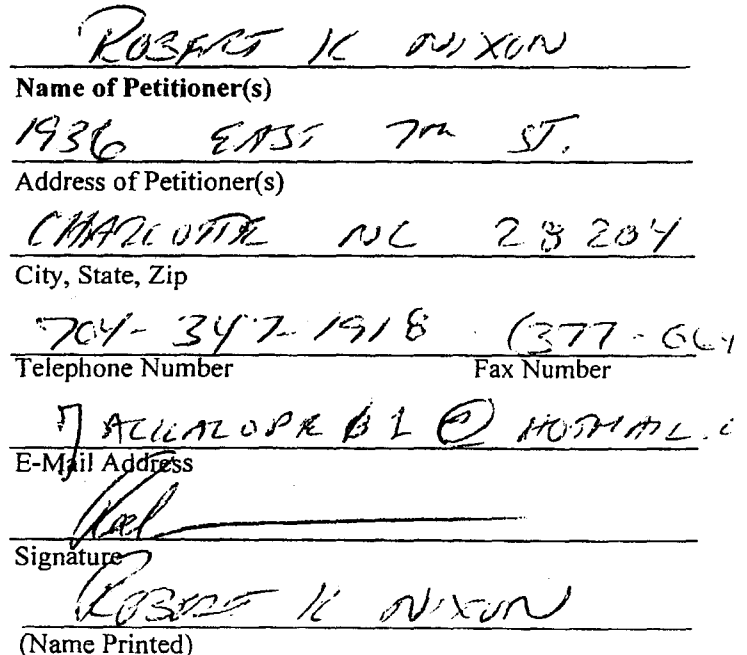 ROBERT K NIXON
Name of Petitioner(s)
1936 EAST 7TH ST.
Address of Petitioner(s)
CHARLOTTE NC 28204
City, State, Zip
704-347-1918 (377-
Telephone Number Fax Number
JACKALOPE @ HOTMAIL.C
E-Mail Address
Signature
ROBERT K NIXON
(Name Printed)